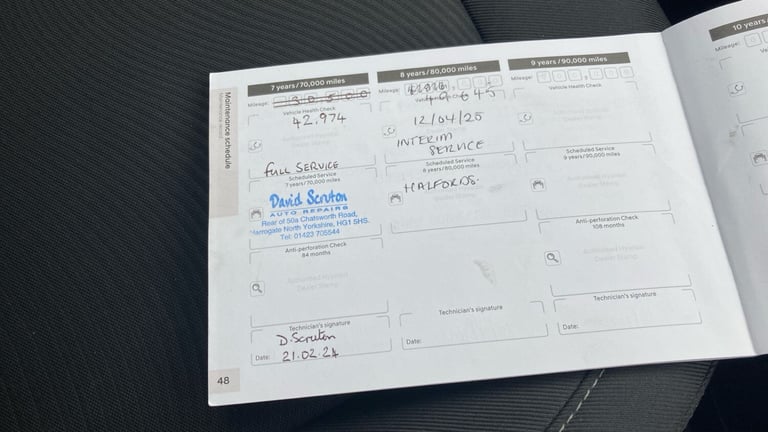 Maintenance schedule
Maintenance record
7 years/70,000 miles
Mileage:
Vehicle Health Check
42,974
Authorised Hyundai
Dealer Stamp
FULL SERVICE
Scheduled Service
7 years/70,000 miles
David Scruton
AUTO REPAIRS
Rear of 50a Chatsworth Road,
Harrogate North Yorkshire, HG1 5HS.
Tel: 01423 705544
Anti-perforation Check
84 months
Authorised Hyundai
Dealer Stamp
Technician's signature
D. Scruton
Date: 21.02.24
48
8 years/80,000 miles
Mileage:
49645
Vehicle Health Check
12/04/25
INTERIM
SERVICE
Scheduled Service
8 years/80,000 miles
HALFORDS.
Technician's signature
Date:
9 years/90,000 miles
Mileage:
Vehicle Health Check
Scheduled Service
9 years/90,000 miles
Anti-perforation Check
108 months
Authorised Hyundai
Dealer Stamp
Technician's signature
Date:
10 years
Mileage: